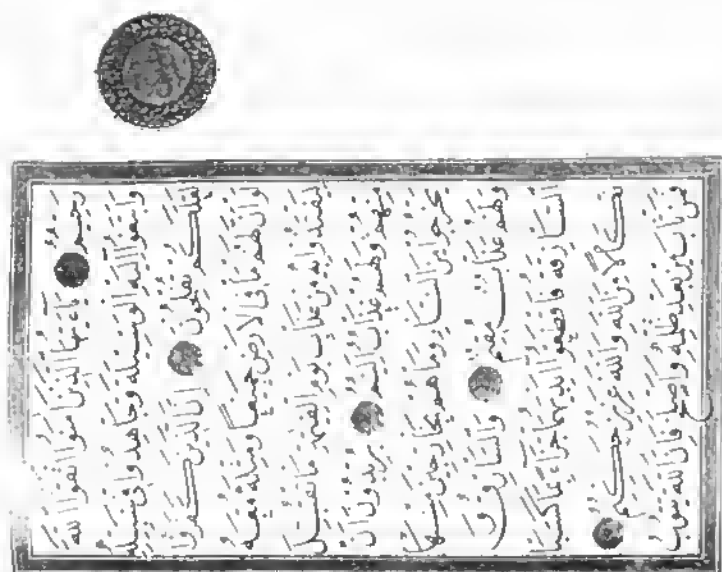 رحيم يا أيها الذين آمنوا اتقوا الله
وابتغوا إليه الوسيلة وجاهدوا في سبيله
لعلكم تفلحون إن الذين كفروا
لو أن لهم ما في الأرض جميعا ومثله معه
ليفتدوا به من عذاب يوم القيمة ما تقبل
منهم ولهم عذاب أليم يريدون أن
يخرجوا من النار وما هم بخارجين منها
ولهم عذاب مقيم والسارق و
السارقة فاقطعوا أيديهما جزاء بما كسبا
نكالا من الله والله عزيز حكيم
فمن تاب من بعد ظلمه وأصلح فإن الله يتوب